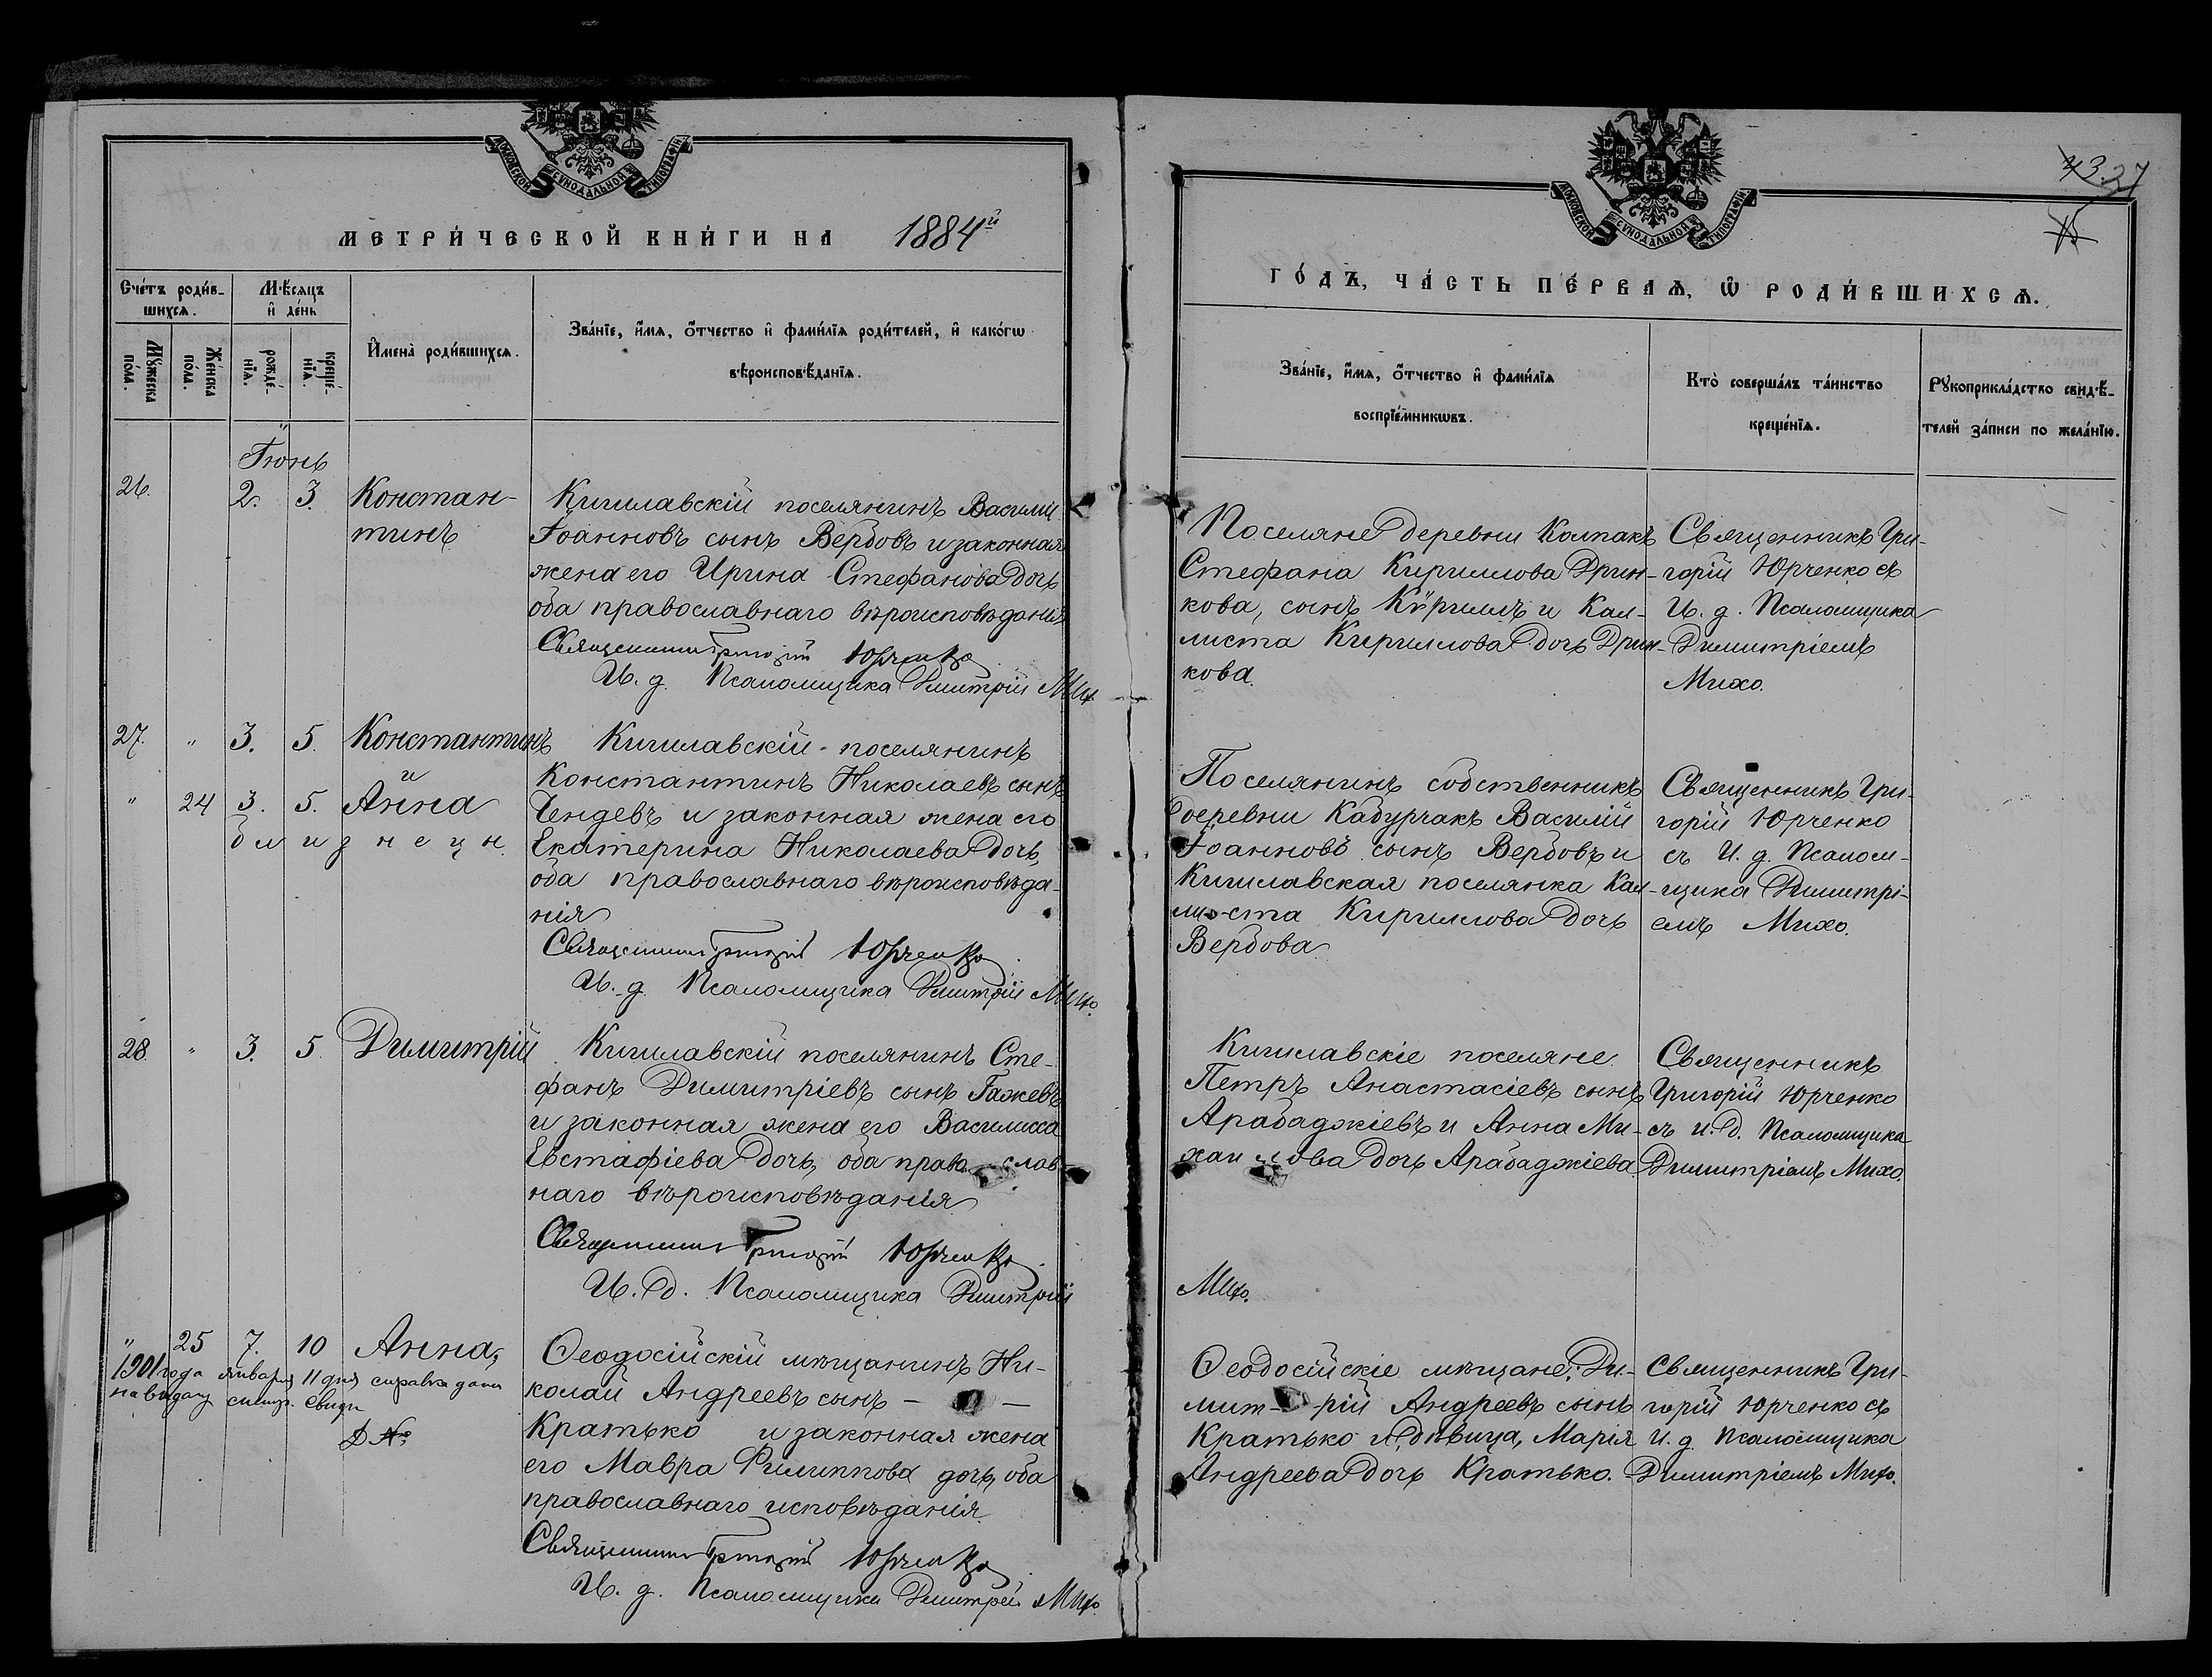 МОСКОВСКОЙ СѴНОДАЛЬНОЙ ТИПОГРАФІИ
МЕТРИ́ЧЕСКОЙ КНИ́ГИ НА 1884й
Сче́тъ роди́в-
шихсѧ.
Мѣ́сѧцъ
и҆ де́нь
Мꙋ́жеска
по́ла.
Же́нска
по́ла.
рожде́-
нїѧ.
креще́-
нїѧ.
И҆мена̀ роди́вшихсѧ.
Зва́нїе, и҆́мѧ, ѻ҆́тчество и҆ фами́лїѧ роди́телей, и҆ како́гѡ
вѣроисповѣ́данїѧ.
Іюнь
26. 2. 3. Констан-
тинъ
Кишлавскій поселянинъ Василій
Іоанновъ сынъ Вербовъ и законная
жена его Ирина Стефанова дочь
оба православнаго вѣроисповѣданія
Священникъ Григорій Юрченко
И. д. Псаломщика Димитрій Михо.
27. " 3. 5. Константинъ
и
" 24 3. 5. Анна
близнецы.
Кишлавскій поселянинъ
Константинъ Николаевъ сынъ
Чендевъ и законная жена его
Екатерина Николаева дочь,
оба православнаго вѣроисповѣда-
нія
Священникъ Григорій Юрченко
И. д. Псаломщика Димитрій Михо.
28. " 3. 5. Димитрій
Кишлавскій поселянинъ Сте-
фанъ Димитріевъ сынъ Гажевъ
и законная жена его Василисса
Евстафіева дочь, оба православ-
наго вѣроисповѣданія
Священникъ Григорій Юрченко
И. д. Псаломщика Димитрій
" 25 7. 10 Анна,
1901 года января 11 дня справка дана
на выдачу свид.
Ѳеодосійскій мѣщанинъ Ни-
колай Андреевъ сынъ — —
Кратько и законная жена
его Мавра Филиппова дочь, оба
православнаго исповѣданія
Священникъ Григорій Юрченко
И. д. Псаломщика Димитрій Михо.
МОСКОВСКОЙ СѴНОДАЛЬНОЙ ТИПОГРАФІИ
43. 37
ГО́ДЪ, ЧА́СТЬ ПЕ́РВАѦ, Ѡ҆ РОДИ́ВШИХСѦ.
Зва́нїе, и҆́мѧ, ѻ҆́тчество и҆ фами́лїѧ
воспрїе́мникѡвъ.
Кто̀ соверша́лъ та́инство
креще́нїѧ.
Рꙋкоприкла́дство свидѣ́-
телей за́писи по жела́нїю.
Поселяне деревни Колпакъ
Стефана Кириллова Дрин-
кова, сынъ Кѵриллъ и Кал-
листа Кириллова дочь Дрин-
кова.
Священникъ Гри-
горій Юрченко съ
И. д. Псаломщика
Димитріемъ
Михо.
Поселянинъ собственникъ
деревни Кабурчакъ Василій
Іоанновъ сынъ Вербовъ и
Кишлавская поселянка Кал-
листа Кириллова дочь
Вербова
Священникъ Гри-
горій Юрченко
съ И. д. Псалом-
щика Димитрі-
емъ Михо.
Кишлавскіе поселяне
Петръ Анастасіевъ сынъ
Арабаджіевъ и Анна Ми-
хаилова дочь Арабаджіева.
Священникъ
Григорій Юрченко
съ И. д. Псаломщика
Димитріемъ Михо.
Михо.
Ѳеодосійскіе мѣщане: Ди-
мит-рій Андреевъ сынъ
Кратько и дѣвица, Марія
Андреева дочь Кратько.
Священникъ Гри-
горій Юрченко съ
И. д. Псаломщика
Димитріемъ Михо.